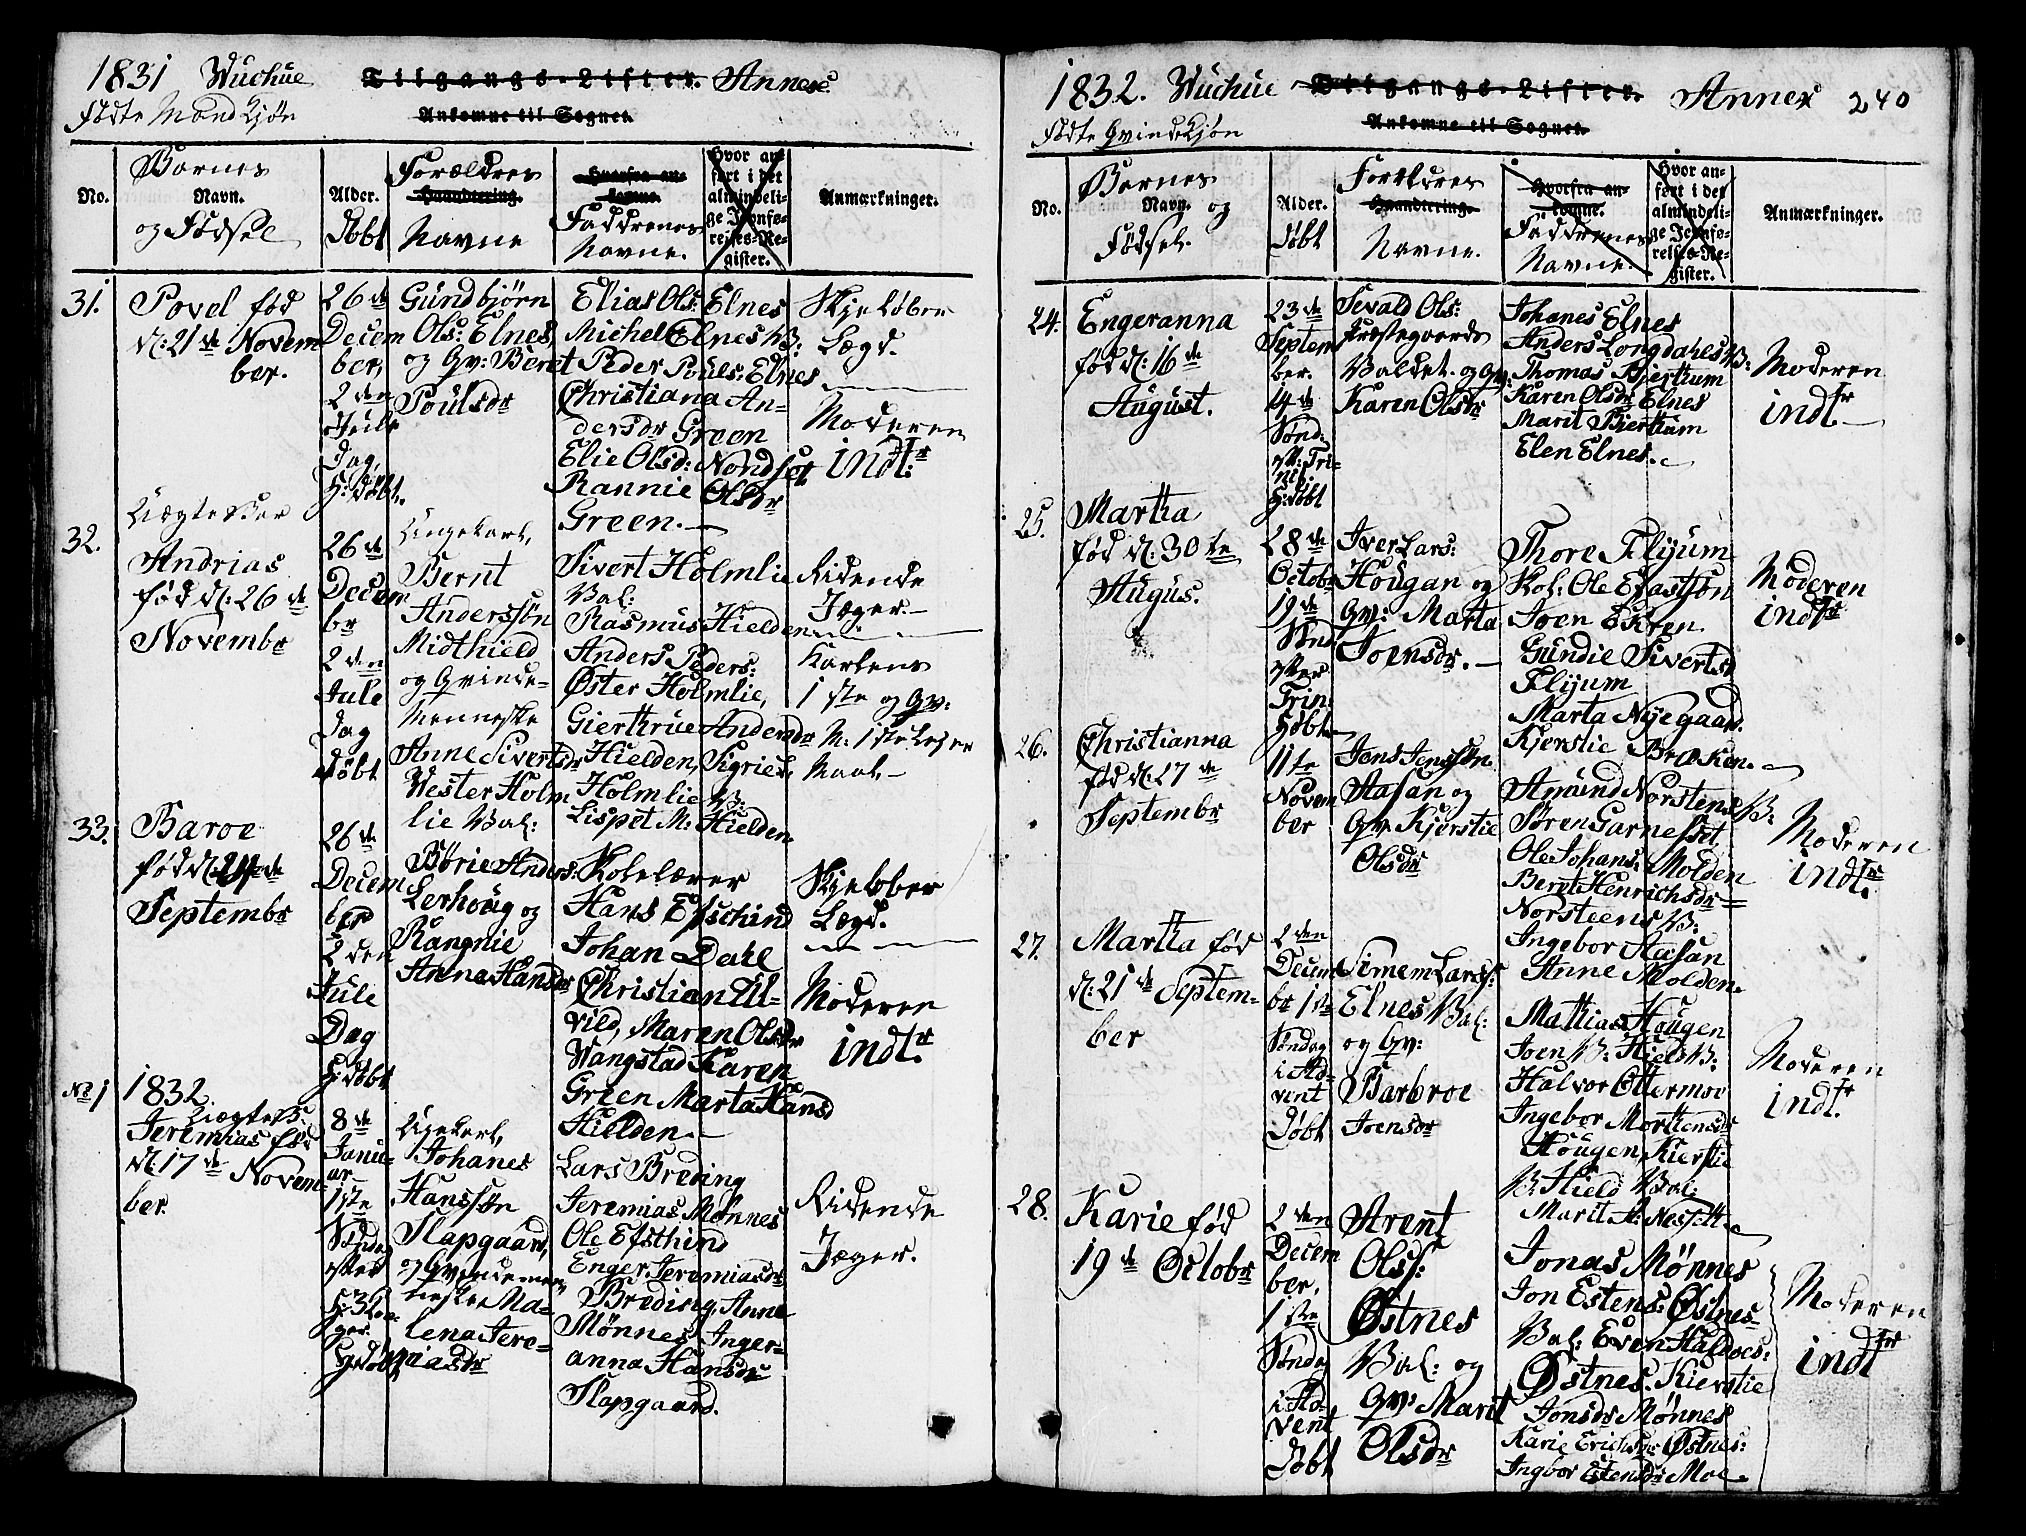 1831 Wuchue Tilgangs-Lister. Annex
Fødte Mandkjøn
Ankomne til Sognet.
No.
Barnes
Navn.
og Fødsel
Alder.
Døbt
Forældres
Haandtering.
Navne
Hvorfra an-
komne.
Faddrenes
Navne.
Hvor an-
ført i det
almindeli-
ge Jevnfø-
relses-Re-
gister.
Anmærkninger.
31.
Povel fød
d: 21de Novem
ber.
26de
Decem
ber,
2den
Jule
Dag,
H: Døbt.
Gundbjørn
Ols: Elnes,
og Gv: Beret
Poulsdr
Elias Ols: Elnes
Michel Elnes V:
Peder Pouls: Elnes
Christiana An-
dersdr Green
Elie Olsd: Nordset
Rannie Olsdr
Green.
Skjeløber
Lægd.
Moderen
indt.
32.
Uægte Bar
Andrias
fød d: 26de
Novembr
26de
Decem
br
2den
Jule
Dag
Døbt
Ungekarl,
Bernt
Anderssøn
Midthield
og Qvinde-
Menneske
Anne Sivertsdr
Vester Holm
lie Val:
Sivert Holmlie
Val:
Rasmus Hielden
Anders Peders:
Øster Holmlie,
Gierthrue Andersdr
Hielden, Sigried
Holmlie V:
Lispet M: Hielden
Ridende
Jæger.
Karlens
1ste og Qv:
M: 1ste Leger
Maal.
33.
Baroe
fød d: 24de
Septembr
26de
Decem
ber
2den
Jule
Dag
H: døbt
Børie Anders:
Lerhoug og
Rangnie
Anna Hansdr
Kolelærer
Hans Efschind
Johan Dahl
Christian Ul-
vild, Maren Olsdr
Wangstad Karen
Green Marta Hansd
Hielden.
Skjeløber
Lægd.
Moderen
indt.
No 1
1832
Uægte B:
Jeremias fød
d: 17de Novem
ber.
8de
Janu-
ar
1ste
Søndag
efter
H: 3 Kon-
ger
H: døbt
Ungekarl,
Johanes
Hanssøn
Slapgaard,
og Qvindemen
neske Ma-
lena Jere-
miasdr
Lars Breding
Jeremias Mønnes
Ole Efsthind
Enger Jeremiasdr
Breding, Anne
Mønnes Inger-
anna Hansdr
Slapgaard.
Ridende
Jæger.
1832. Wuchue Tilgangs-Lister. Annex 240
Fødte Qvindekjøn
Ankomne til Sognet.
No.
Barnes
Navn. og
Fødsel.
Alder.
Døbt
Forældres
Haandtering.
Navne.
Hvorfra an-
komne.
Faddrenes
Navne.
Hvor an-
ført i det
almindeli-
ge Jevnfø-
relses-Re-
gister.
Anmærkninger.
24.
Engeranna
fød d: 16de
August.
23de
Septem
ber.
14de
Sønd:
eft: Tri-
nit.
H: døbt
Sivald Ols:
Præstegaards
Valdet og Gv:
Karen Olsdr
Johanes Elnes
Anders Longdahls V:
Thomas Bjerkum
Karen Olsdr Elnes
Marit Bierkum
Elen Elnes.
Moderen
indtr
25.
Martha
fød d: 30te
Augus.
28de
Octobr
19de
Sønd
efter
Trin:
H: døbt
Iver Lars:
Hougan og
Gv: Marta
Joensdr.
Thore Flyum
Skol: Ole Efastsøn
Joen Ekren
Gundie Sivertsd
Flyum
Marta Nyegaard.
Kjerstie Bræken.
Moderen
indtr
26.
Christianna
fød d: 27de
Septembr
11te
Novem
ber
Jens Jenssøn
Aasan og
Gv: Kjerstie
Olsdr
Amund Norstens V:
Søren Garnesset
Ole Johans: Molden
Beret Henrichsdr
Norsteens V:
Ingebor Aasan
Anne Molden.
Moderen
indtr.
27.
Martha fød
d: 21de Septem-
ber
2den
Decem
br 1ste
Søndag
i Ad-
vent
Døbt
Simem Larss:
Elnes Val:
og Gv:
Barbroe
Joensdr
Mathias Hougen
Joen V: Hields V:
Halvor Ottermoe
Ingebor Morttensdr
Hougen, Kierstie
V: Hield Val:
Marit A: Nessett
Moderen
indtr
28.
Karie fød
19de Octobr
2den
Decem
ber,
1ste
Søndag
i Ad-
vent
Døbt
Arent
Olss:
Østnes
Val: og
Gv: Marit
Olsdr
Jonas Mønnes
Jon Estens: Østnes
Val: Even Haldoes:
Østnes. Kierstie
Jonsdr Mønnes
Karie Erichsdr Østnes:
Ingbor Estensdr Moe
Moderen
indtr